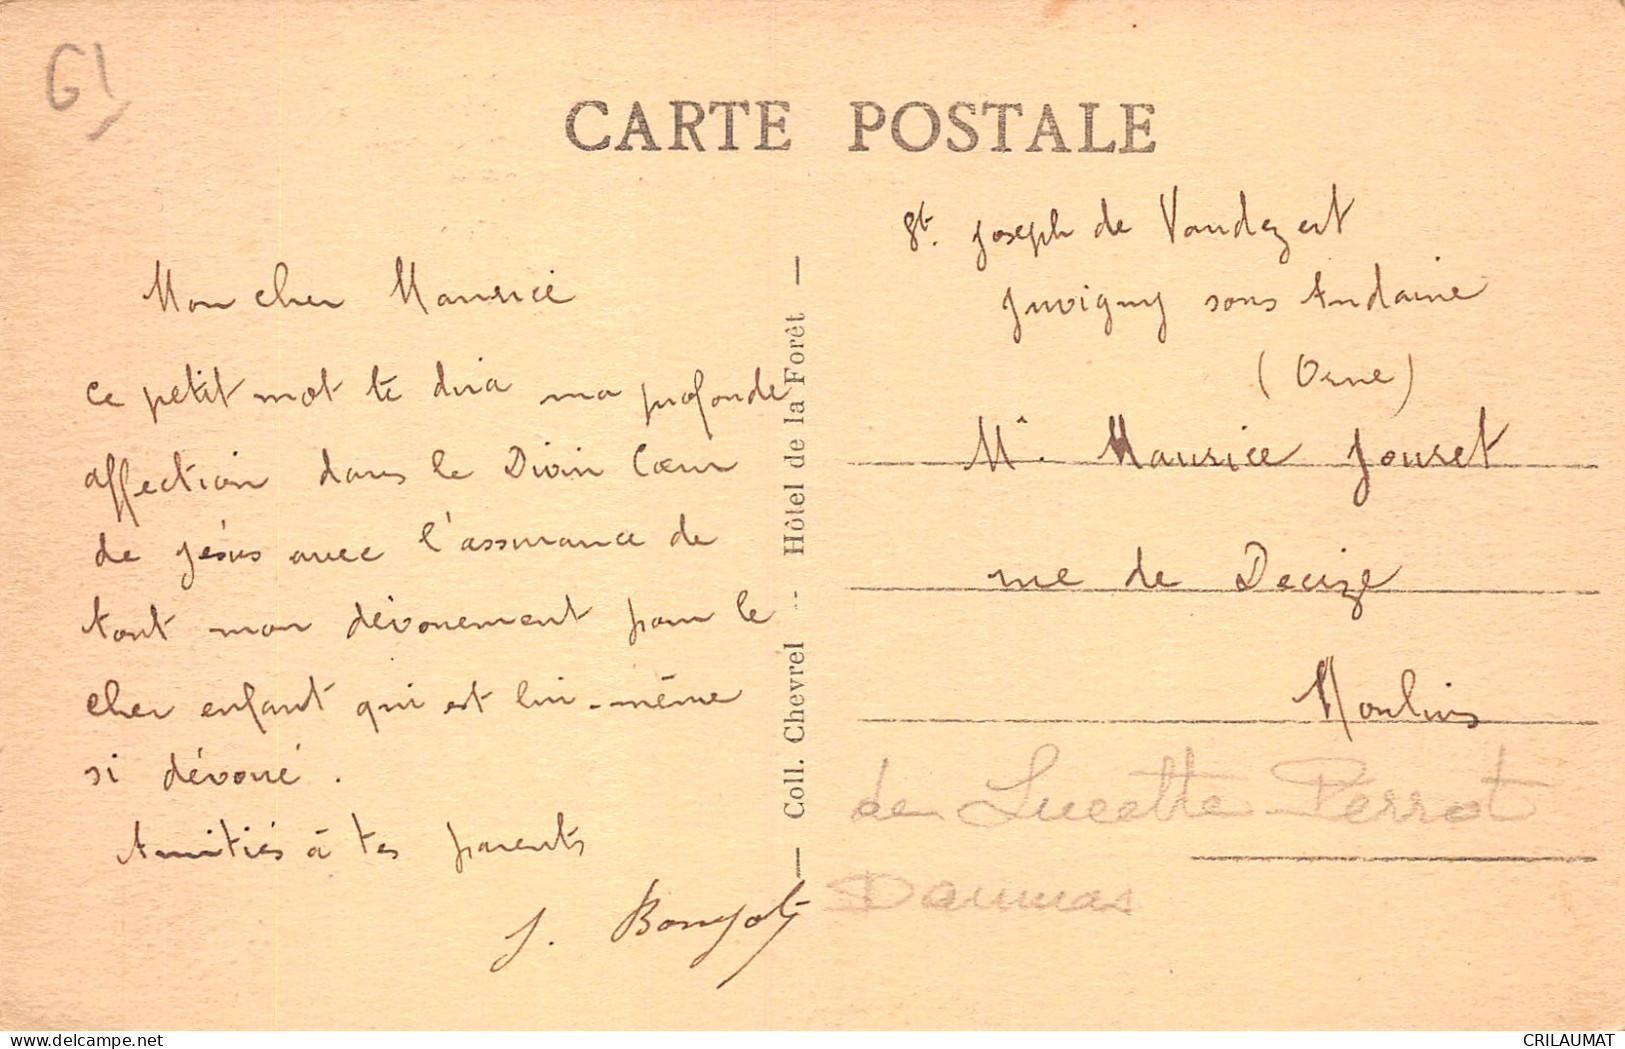 G1
CARTE POSTALE
Mon cher Maurice
Ce petit mot te dira ma profonde
affection dans le Divin Cœur
de Jésus avec l'assurance de
tout mon dévouement pour le
cher enfant qui est lui-même
si dévoué.
Amitiés à tes parents
J.
Coll. Chevrel -- Hôtel de la Forêt
St. Joseph de Vaudezert
Juvigny sous Andaine
(Orne)
Mr. Maurice Jouret
rue de Decize
Moulins
de Lucette Perrot
Daumas
delcampe.net
CRILAUMAT